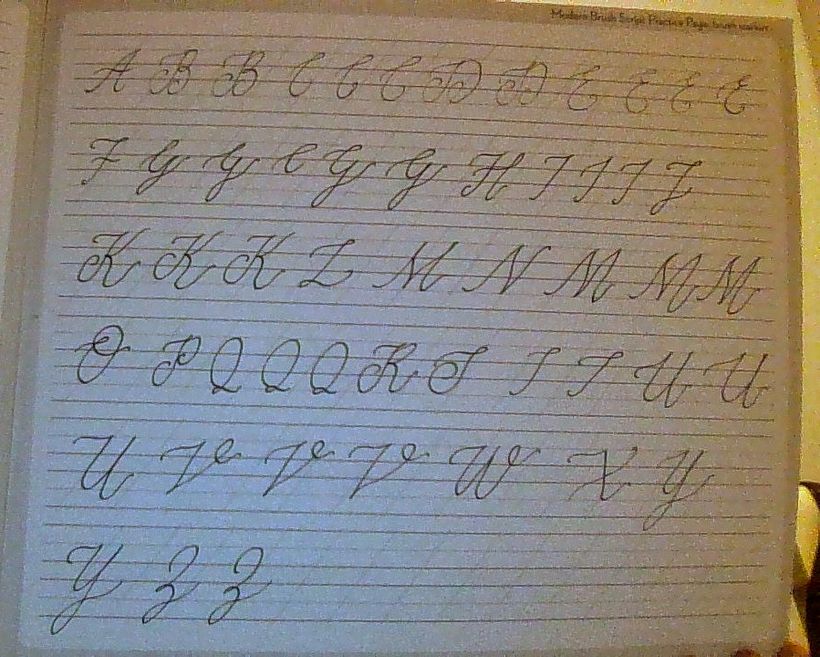 Modern Brush Script Practice Page: brush markers
A B B C C C D D E E E E
F G G C G G H I J J Z
K K K L M N M M M
O P Q Q Q R S T T U U
U V V V W X Y
Y Z Z